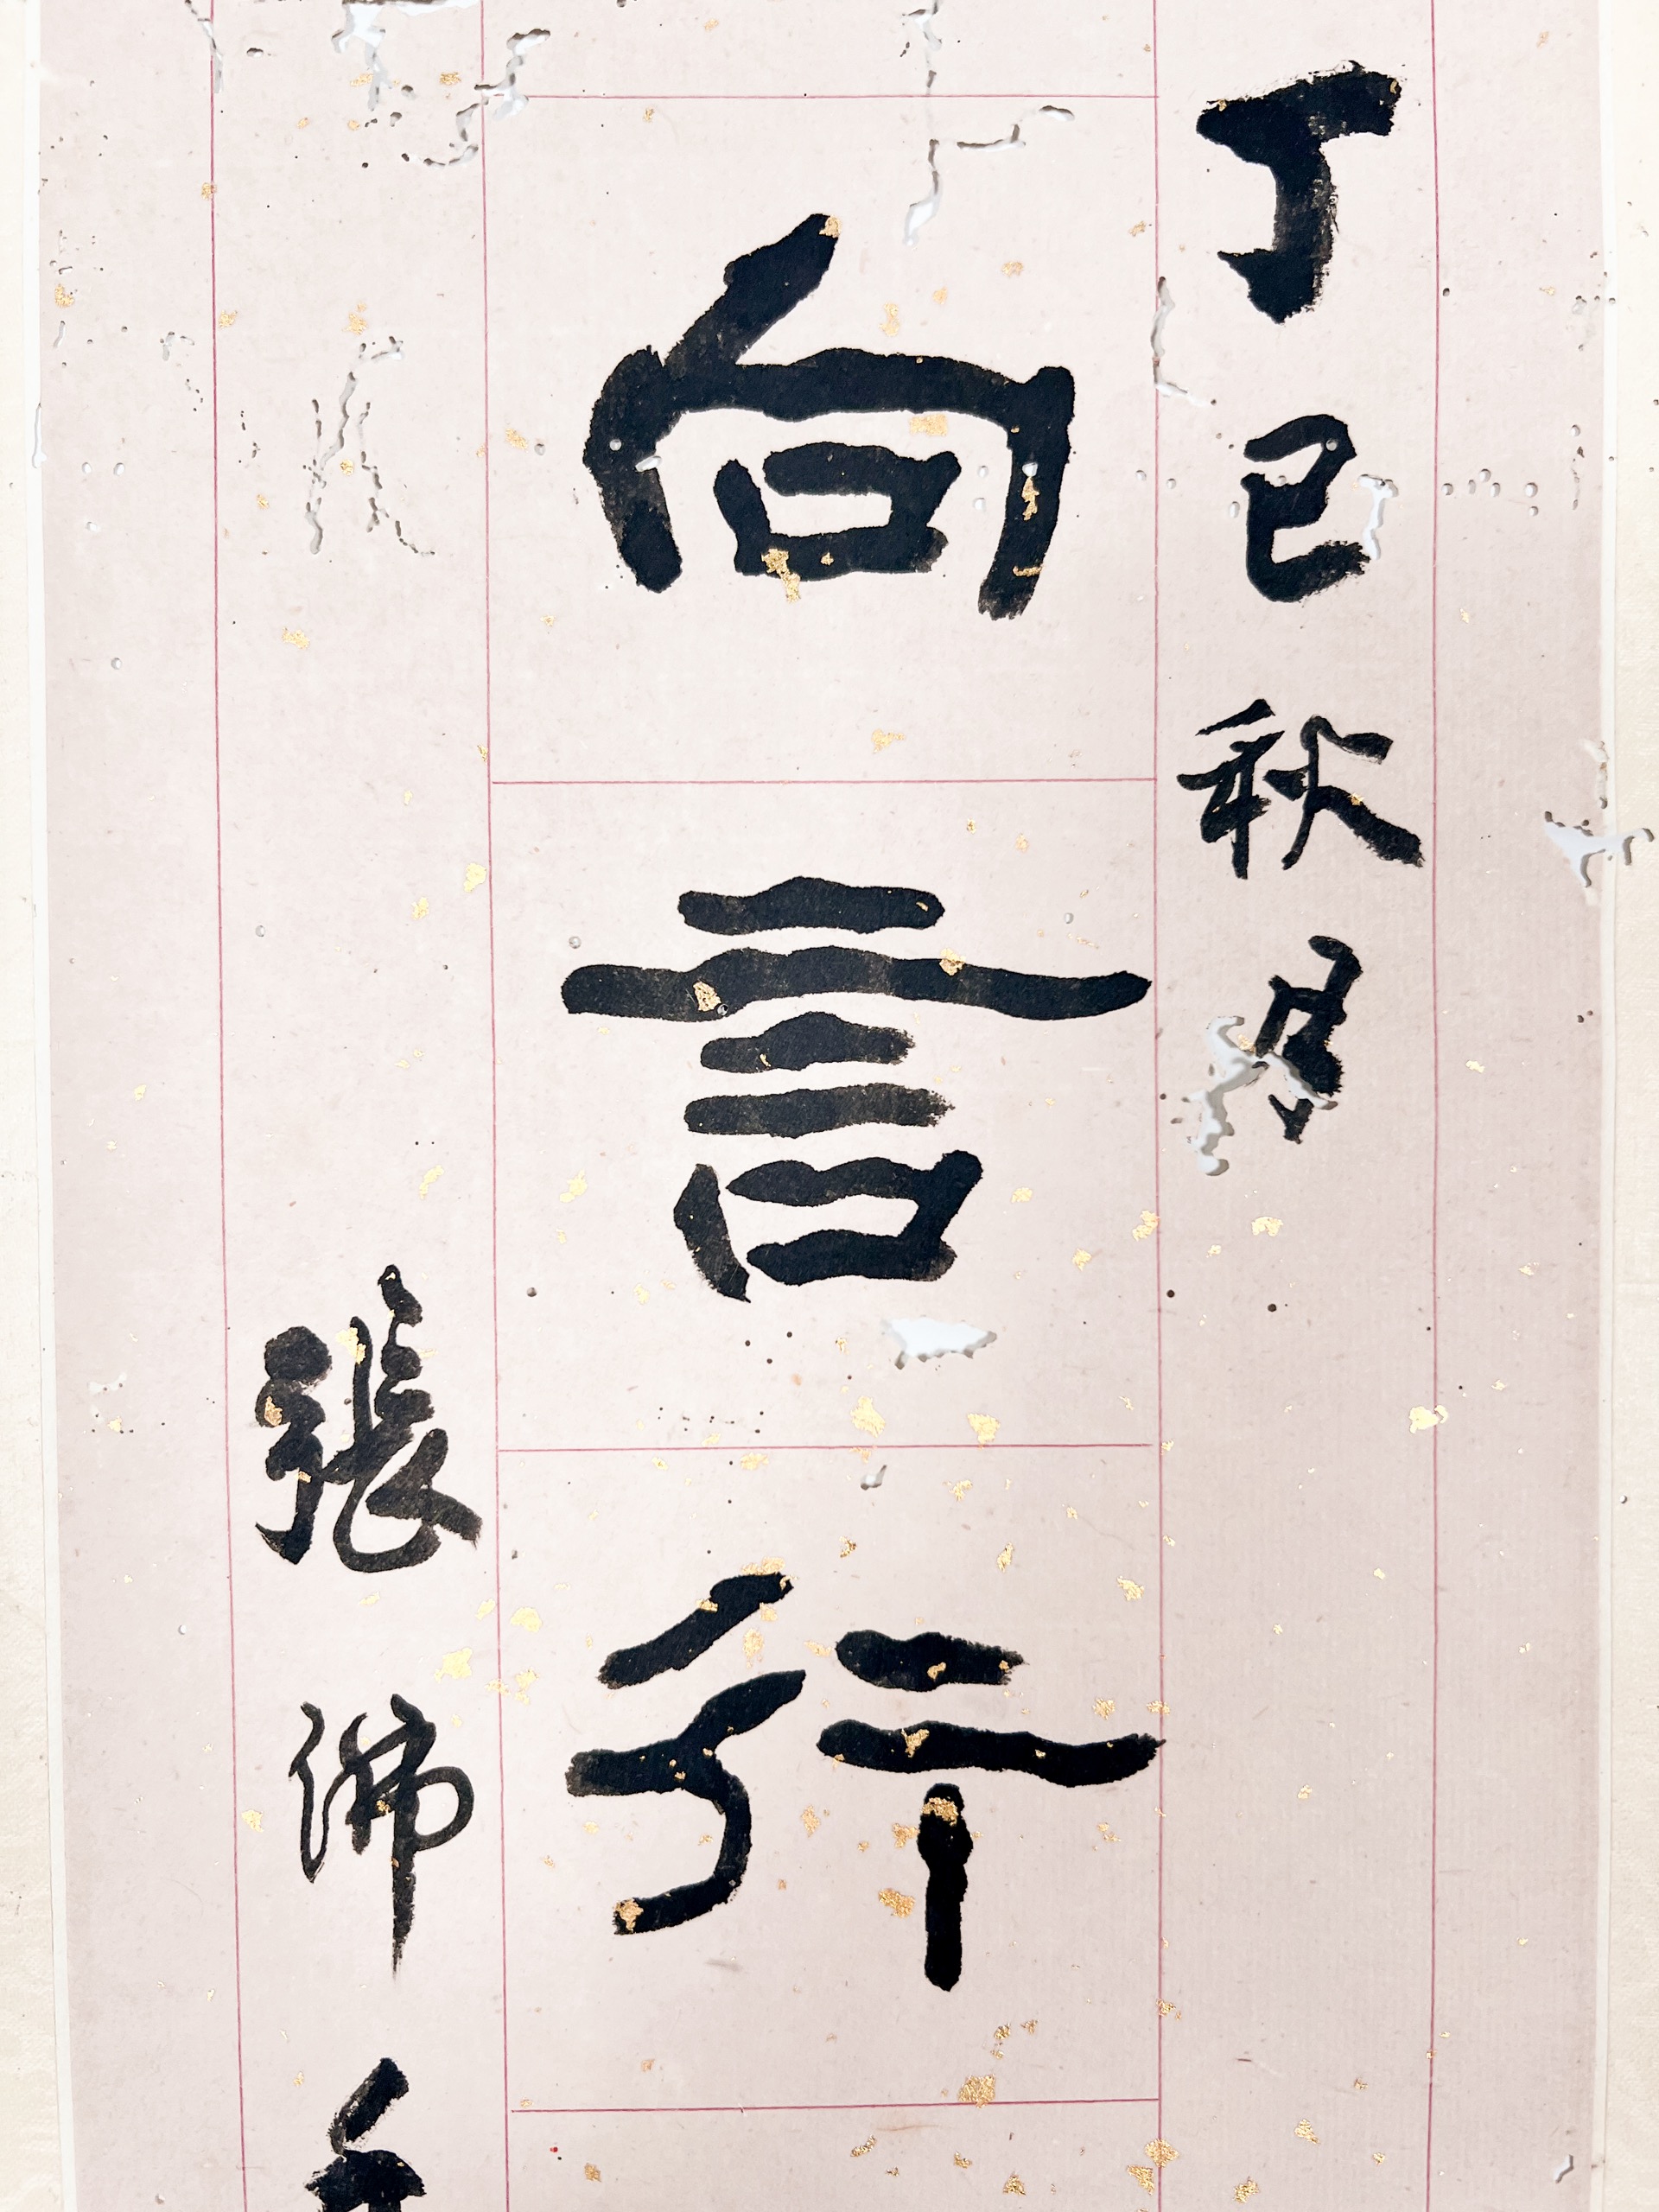 丁巳秋月
向言行
張海